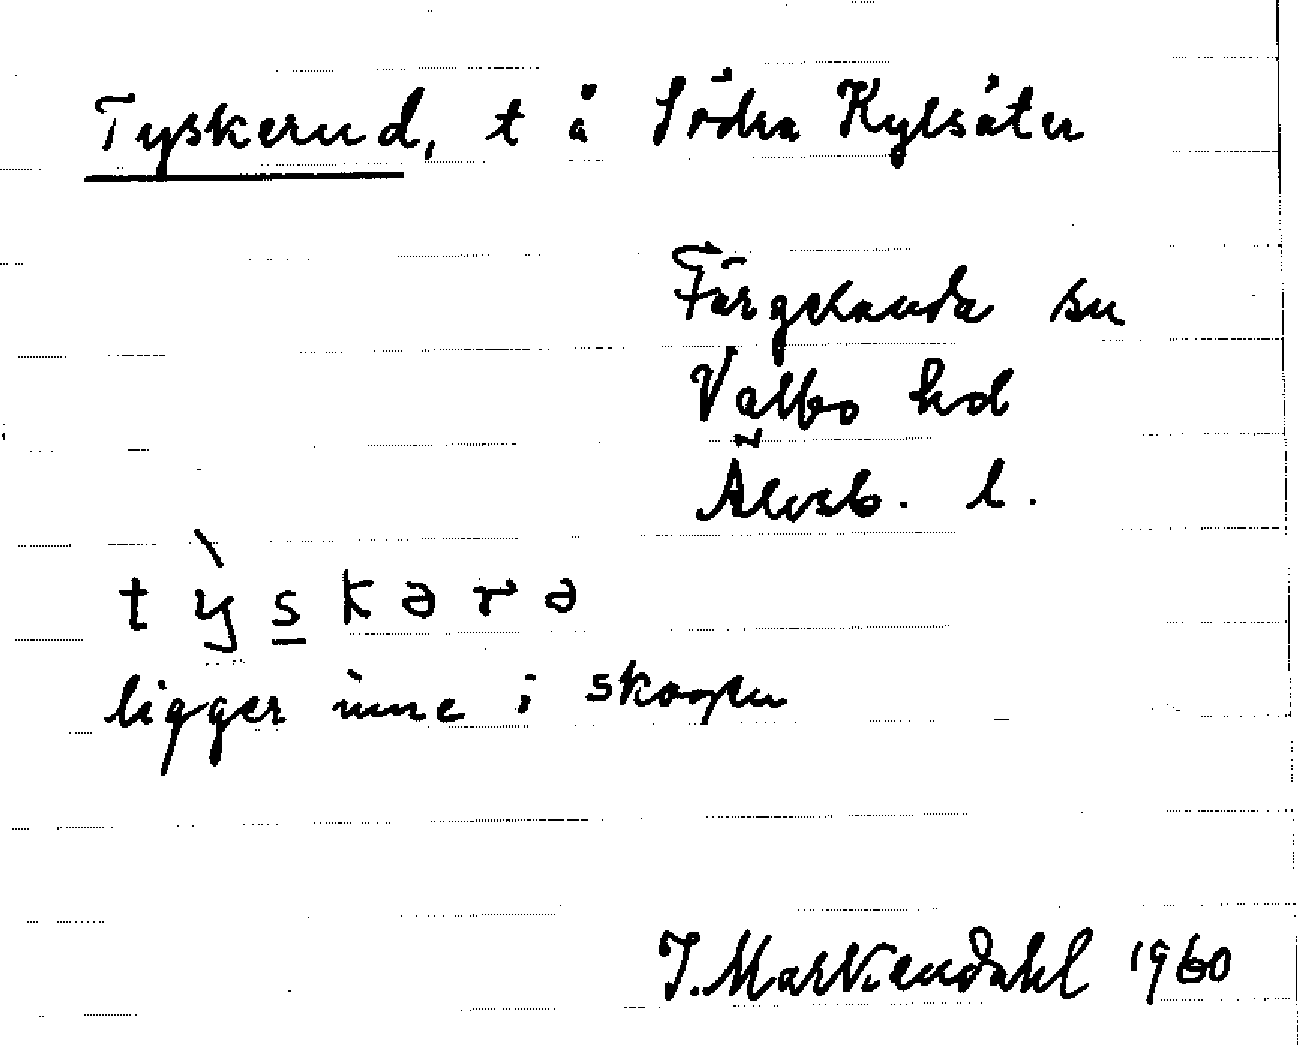 Tyskerud, t å Södra Kylsäter
Färgelanda sn
Valbo hd
Älvsb. l.
tỳskərə
ligger inne i skogen
I. Markendahl 1960